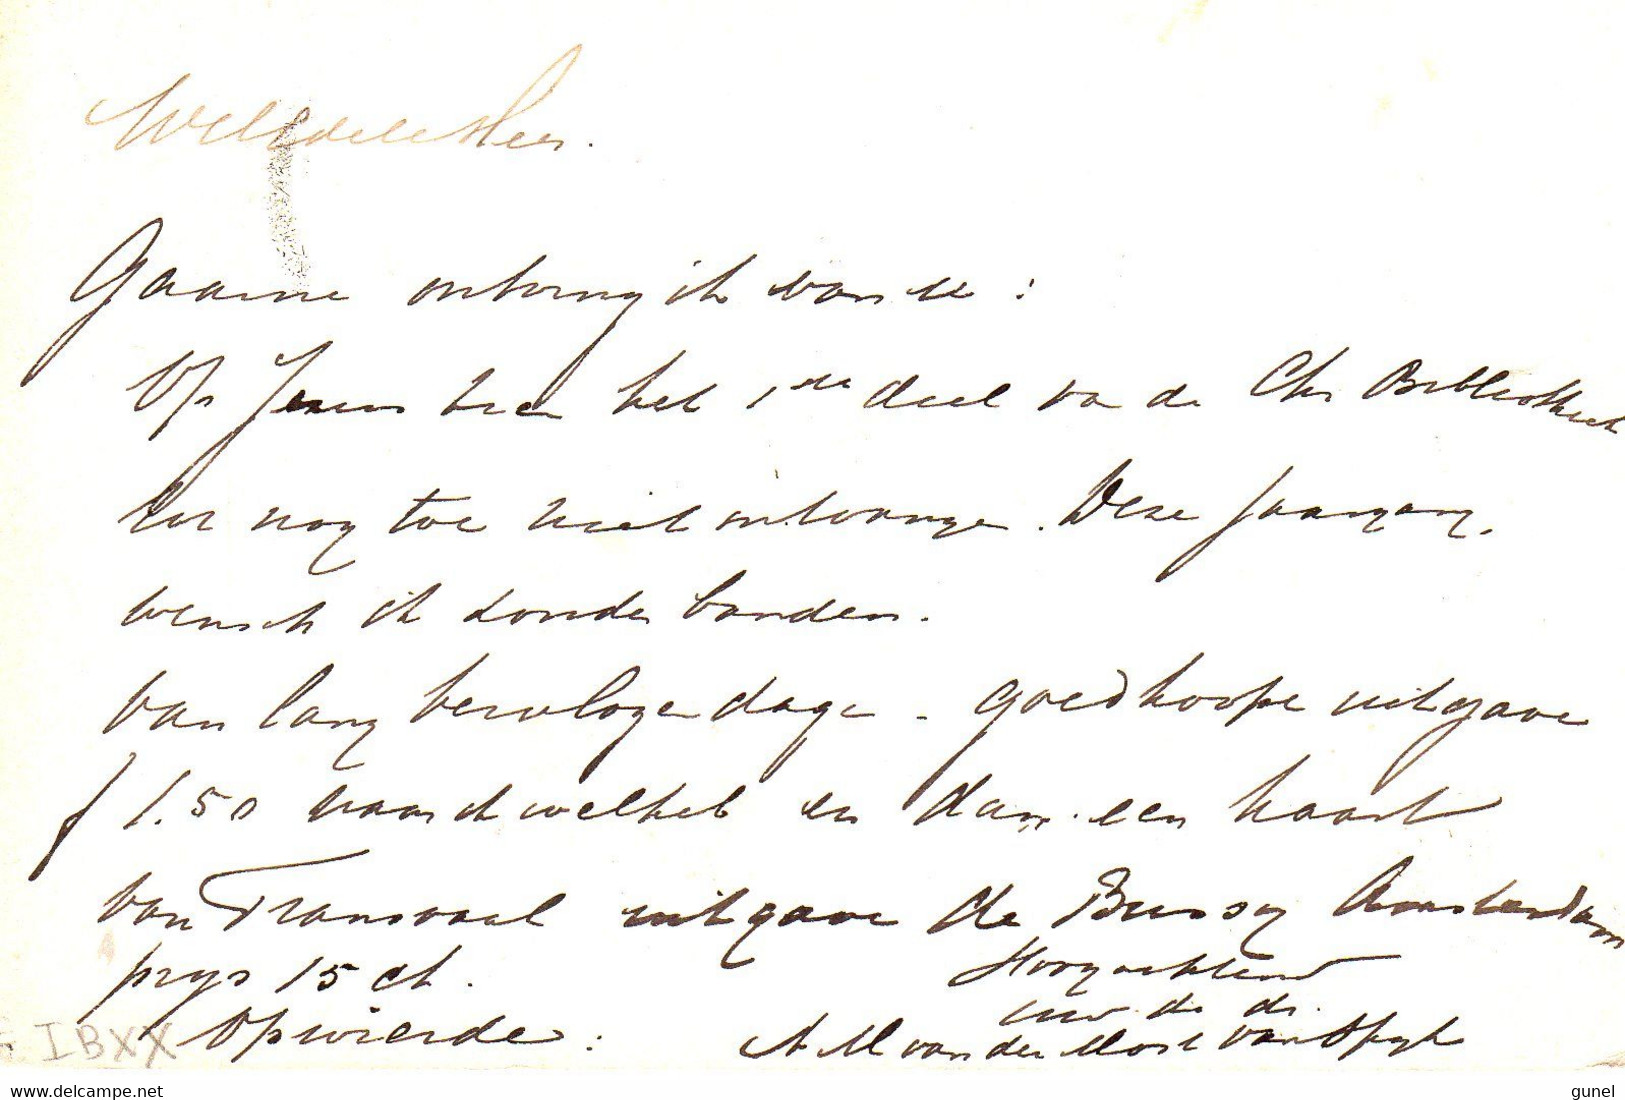 WelEdele Heer.
Gaarne ontvang ik van u:
Op Jezus het 1ste deel va de Chr Bibliotheek
tot nog toe niet ontvange. Deze Jaargang.
wensch ik zonder banden.
Van lang vervlogen dage - goedkoope uitgave
f 1.50 en dan een kaart
van Transvaal uitgave de Bussy Amsterdam
prijs 15 ct.
Hoogachtend
uw. dw. dr.
Opwierde: A M van der Most van Spijk
IBXX
www.delcampe.net
gunel